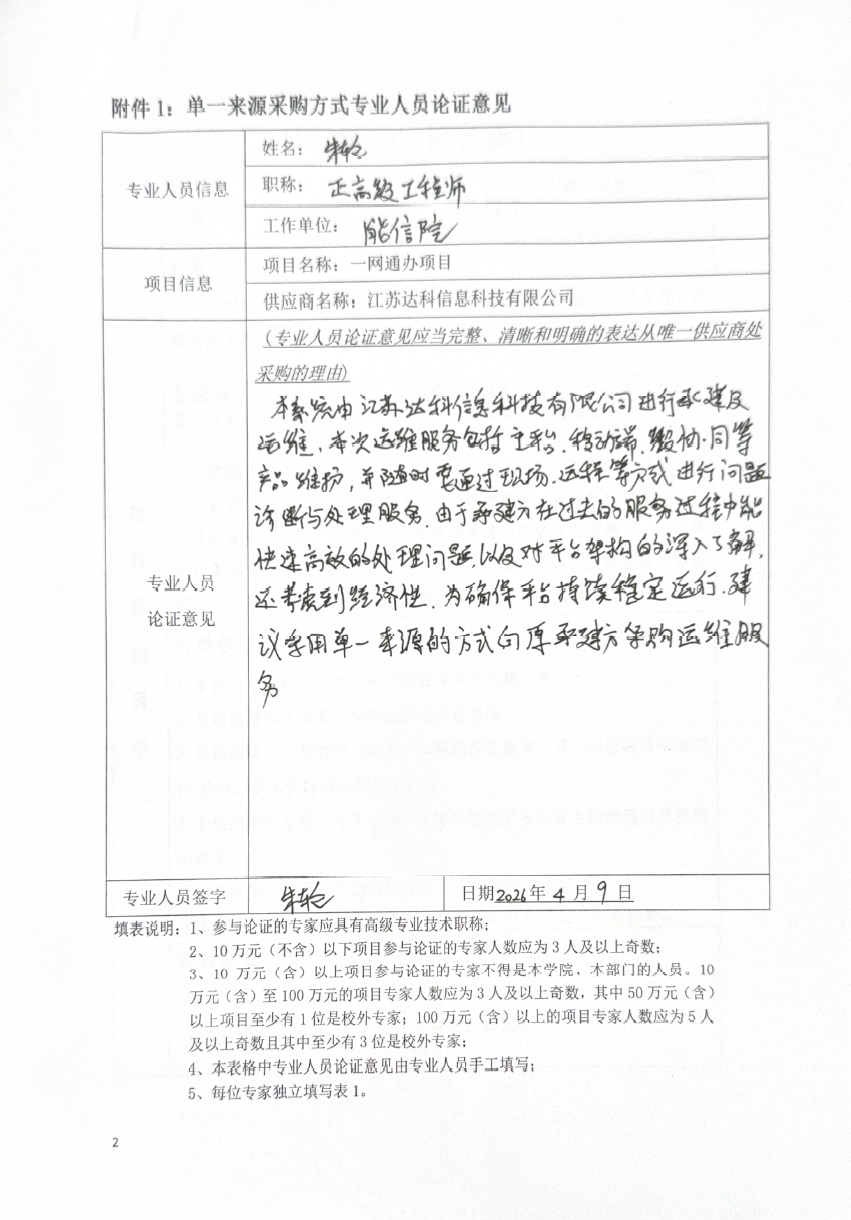 附件 1：单一来源采购方式专业人员论证意见
专业人员信息
姓名：
职称： 正高级工程师
工作单位： 能信院
项目信息
项目名称：一网通办项目
供应商名称：江苏达科信息科技有限公司
专业人员
论证意见
(专业人员论证意见应当完整、清晰和明确的表达从唯一供应商处
采购的理由)
本系统由江苏达科信息科技有限公司进行承建及
运维，本次运维服务包括主平台、移动端、微协同等
产品维护，并随时需通过现场、远程等方式进行问题
诊断与处理服务。由于承建方在过去的服务过程中能
快速高效的处理问题，以及对平台架构的深入了解，
还考虑到经济性，为确保平台持续稳定运行，建
议采用单一来源的方式向原承建方采购运维服
务
专业人员签字
日期2026年 4 月 9 日
填表说明：1、参与论证的专家应具有高级专业技术职称；
2、10 万元（不含）以下项目参与论证的专家人数应为 3 人及以上奇数；
3、10 万元（含）以上项目参与论证的专家不得是本学院、本部门的人员。10
万元（含）至 100 万元的项目专家人数应为 3 人及以上奇数，其中 50 万元（含）
以上项目至少有 1 位是校外专家；100 万元（含）以上的项目专家人数应为 5 人
及以上奇数且其中至少有 3 位是校外专家；
4、本表格中专业人员论证意见由专业人员手工填写；
5、每位专家独立填写表 1。
2